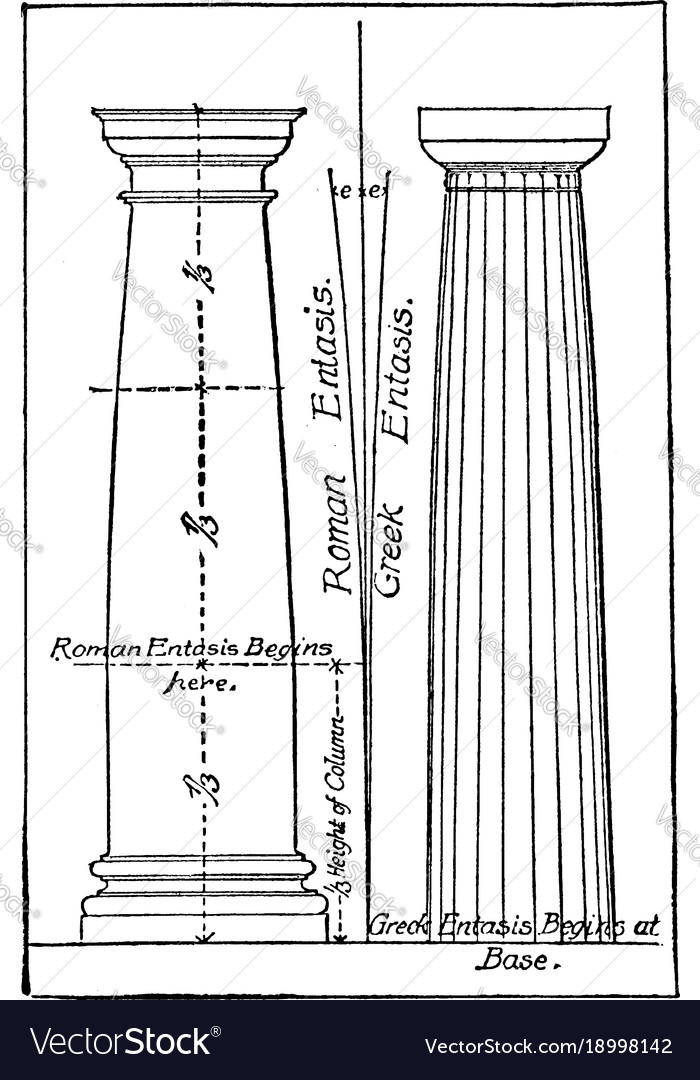 e e
1/3
Roman Entasis.
Greek Entasis.
1/3
Roman Entasis Begins
here.
1/3
1/3 Height of Column
Greek Entasis Begins at
Base.
VectorStock®
VectorStock.com/18998142